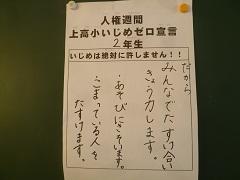 人権週間
上高小いじめゼロ宣言
2年生
いじめは絶対に許しません!!
だから
みんなでたすけ合い
きょう力します。
・あそびにさそいます。
・こまっている人を
たすけます。